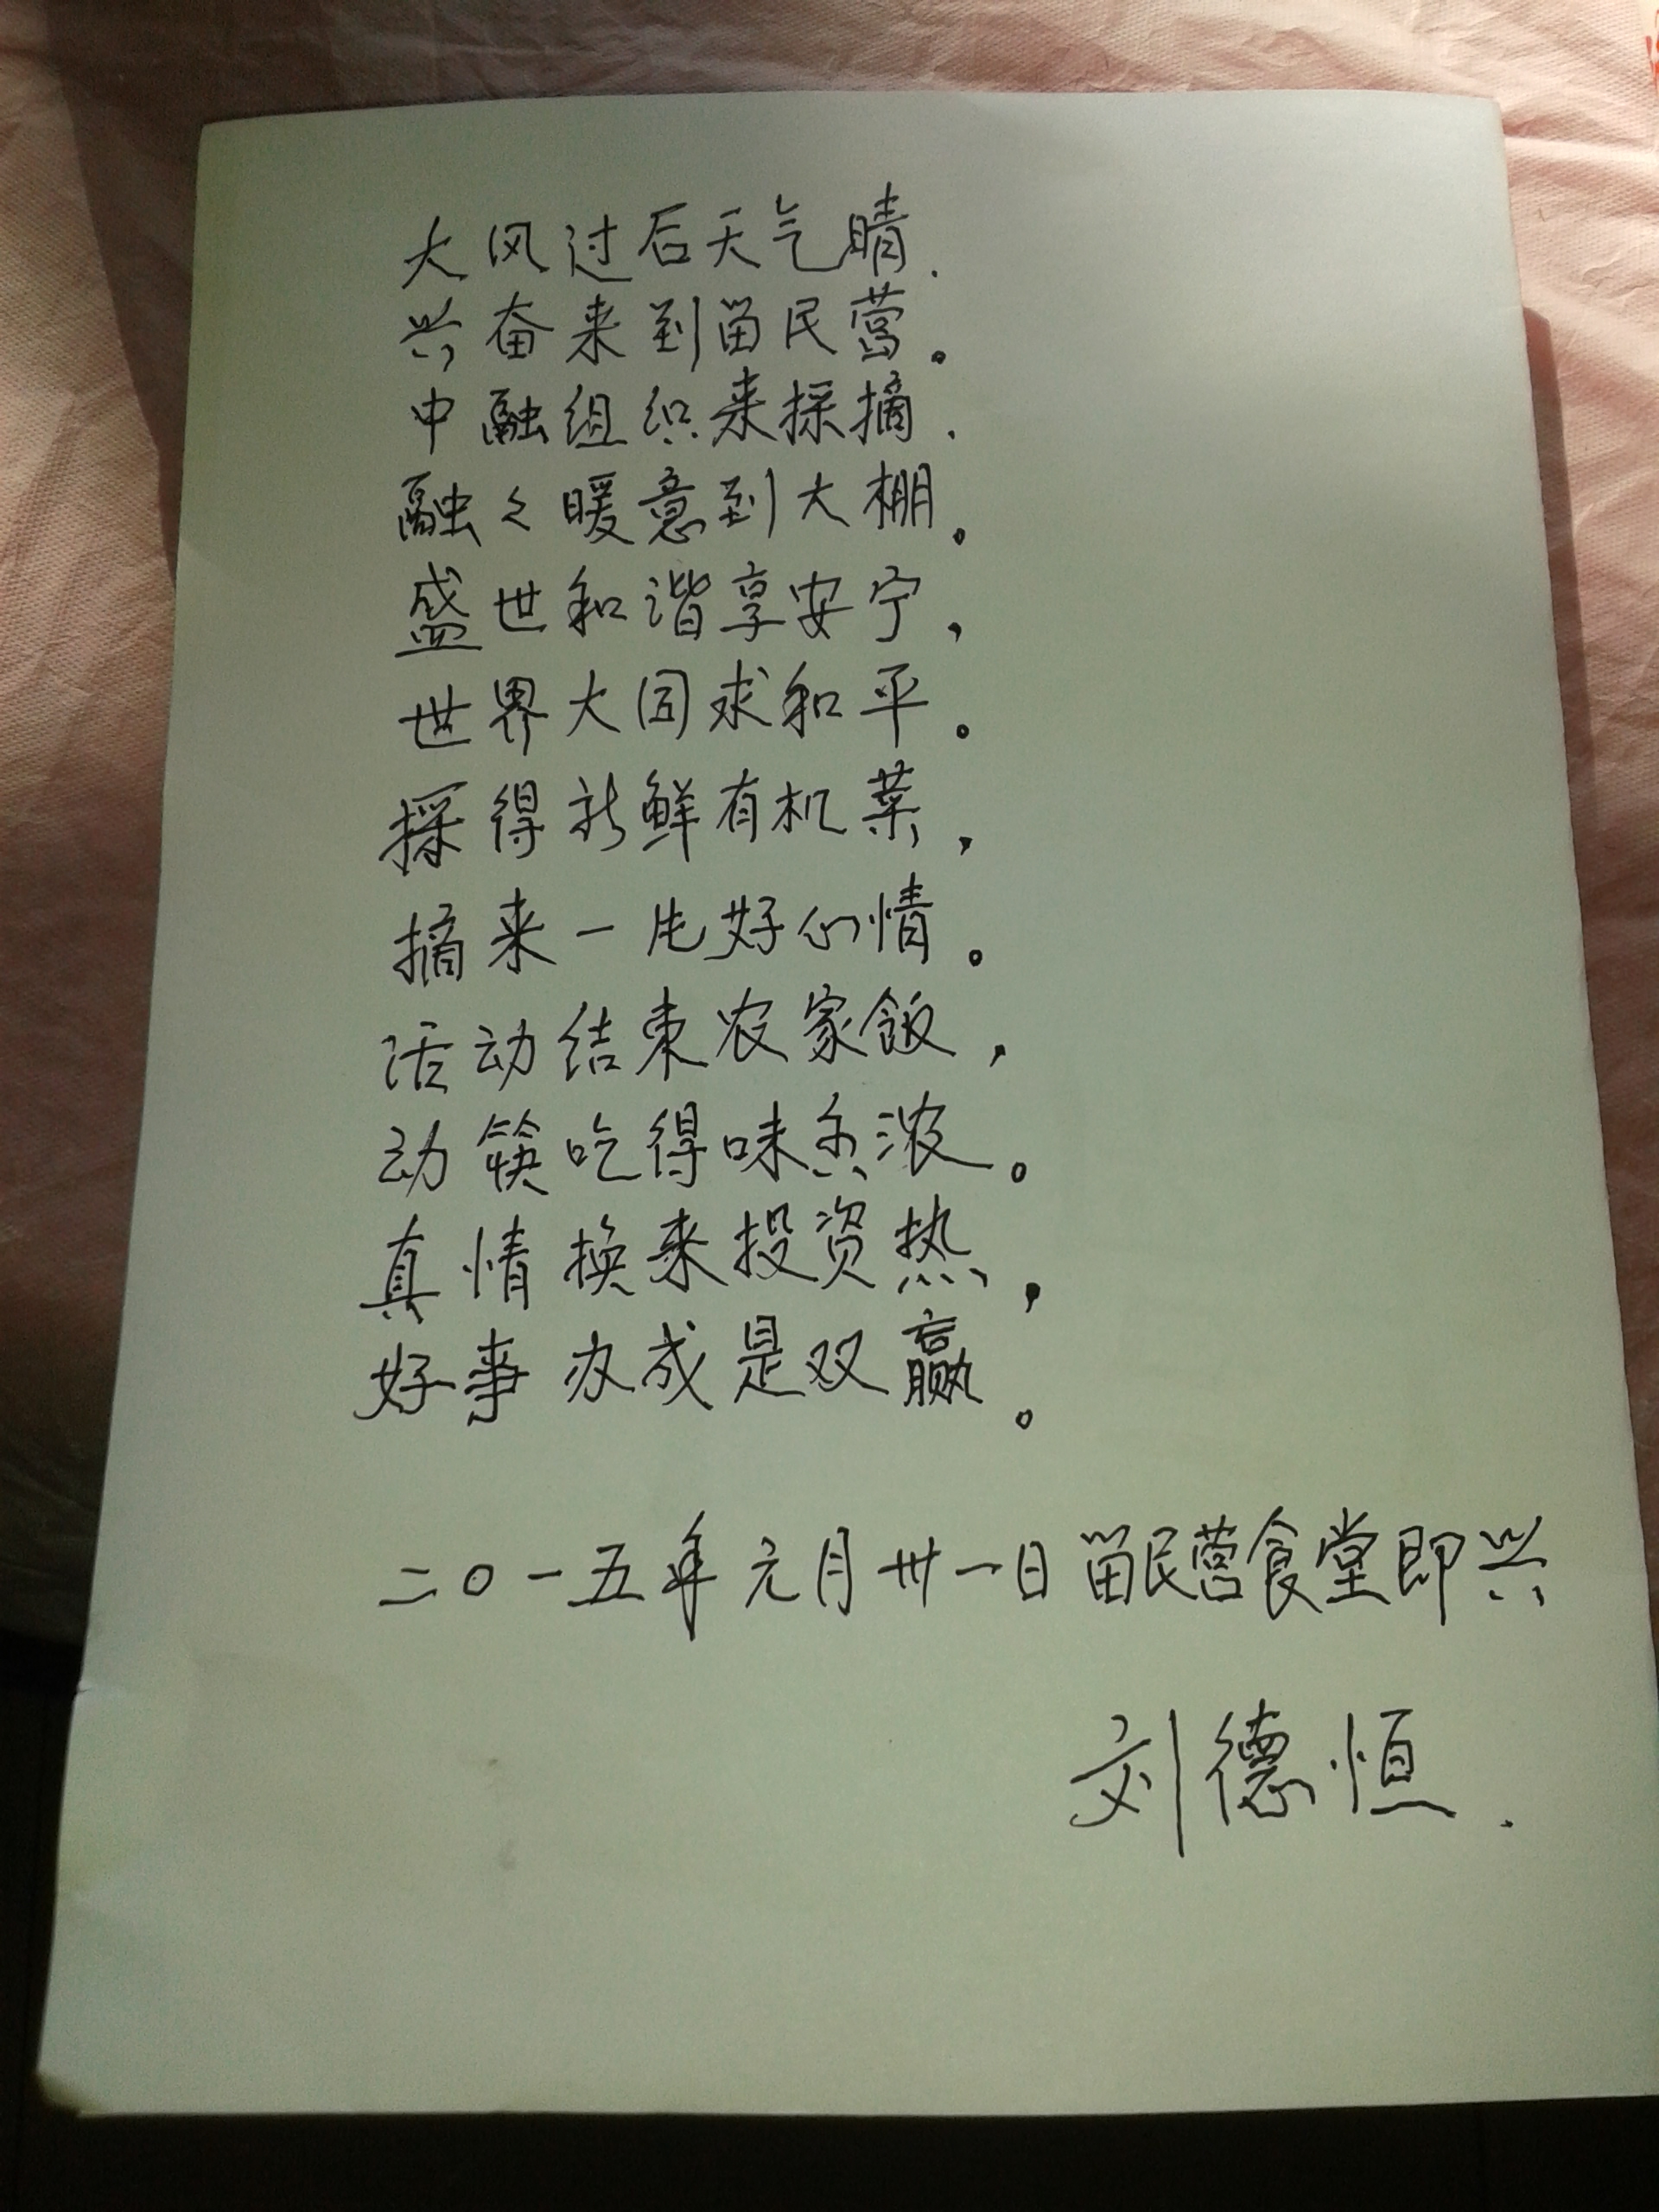 大风过后天气晴.
兴奋来到留民营。
中融组织来採摘.
融々暖意到大棚。
盛世和谐享安宁,
世界大同求和平。
採得新鲜有机菜,
摘来一片好心情。
活动结束农家饭,
动筷吃得味香浓。
真情换来投资热,
好事办成是双赢。
二〇一五年元月卅一日留民营食堂即兴
刘德恒.